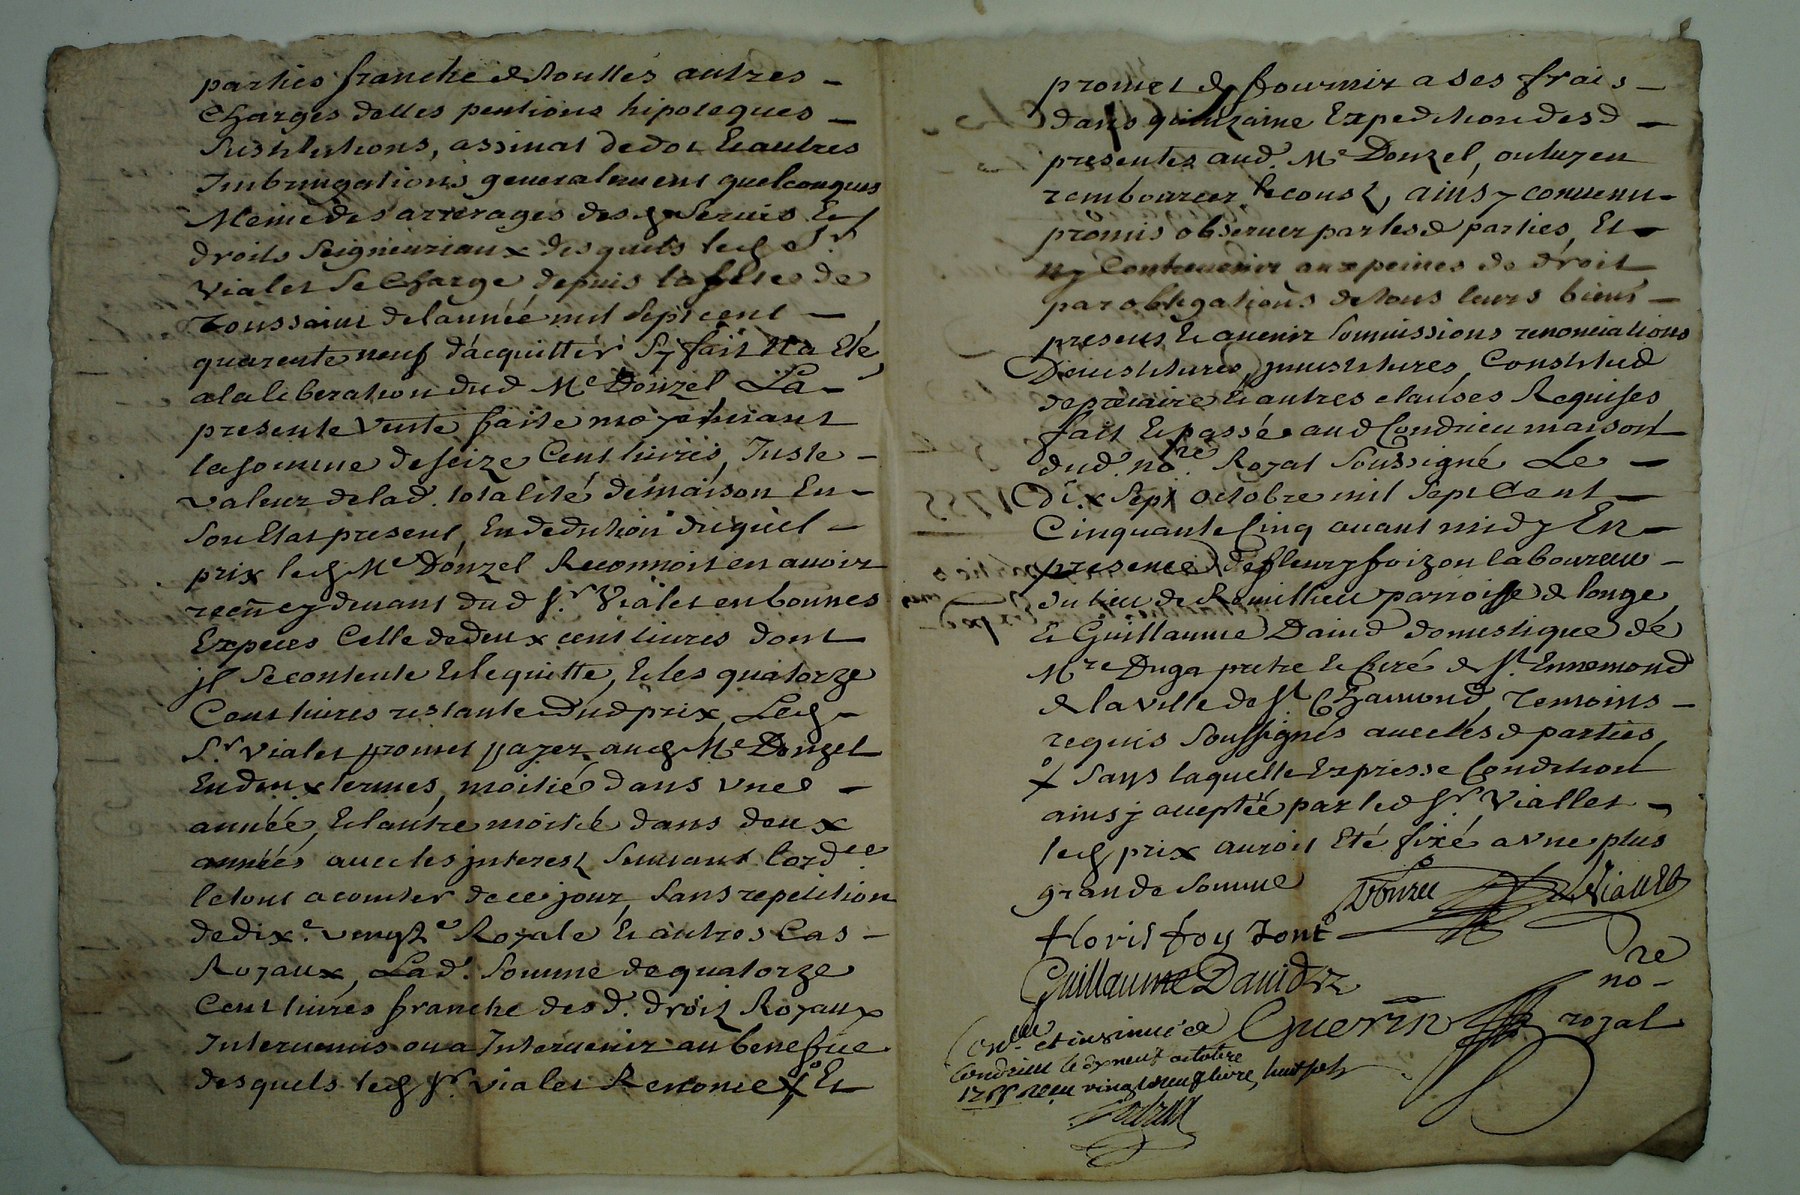 parties franche & de touttes autres -
Charges dettes pentions hipoteques -
Sustitutions, assinat de dot Et autres
Imbringations generalement quelconques
Meme des arrerages des d. Servis Et
droits Seigneuriaux desquels led. Sr.
Vialet Se Charge depuis la fete de
Toussaint de l'année mil Sept cent -
quarente neuf d'acquitter Sy fait n'a Eté
a la liberation dud Me Donzel La -
presente Vente faite moyennant
la somme de seize Cent livres, Juste -
valeur de lad. totalité de maison En -
Son Etat present, En dedution duquel -
prix led Me Donzel Reconnoit en avoir
receu cy devant dud Sr. Vialet en bonnes
Especes Celle de deux cent livres dont
jl Se contente Et le quitte, Et les quatorze
Cent livres restante dud prix, Led -
Sr. Vialet promet payer aud Me Donzel
En deux termes, moitié dans une -
année, Et l'autre moitié dans deux
années avec les jnterest Suivant l'ordce
le tout a comter de ce jour, Sans repetition
de dixe. vingte. Royale Et autres Cas -
Royaux, Lad. Somme de quatorze
Cent livres franche des d. droit Royaux
Intervenus ou a Intervenir au benefice
desquels led Sr. Vialet Renonce X Et
promet de fournir a ses frais -
dans quinzaine Expedition des d -
presentes aud. Me Donzel, ou luy en
rembourcer le coust, ainsy convenu -
promis observer par les d parties, Et -
n'y Contrevenir aux peines de droit
par obligations de tous leurs biens -
presents Et avenir Soumissions renonciations
Devestitures, jnvestitures, Constitud
de precaire Et autres clauses Requises,
fait Et passé aud Condrieu maison
dud. nore. Royal Soussigné Le -
Dix Sept octobre mil Sept Cent -
Cinquante Cinq avant midy En -
presence de fleury foizon laboureur -
du lieu de Remillieu parroisse de longe,
Et Guillaume David domestique de
Mre Duga pretre Et Curé de St. Ennemond
de la ville de St Chamond, Temoins -
requis Soussignés avec les d parties,
X Sans laquelle Expresse Condition
ainsj acceptée par led Sr. Viallet -
led prix auroit Eté fixé a une plus
grande Somme Donzel Viallet
Guillaume David
Guerin nore
royal
Conllé et insinué a
Condrieu le dix neuf octobre
1755 receu vingt neuf livre, huit sols